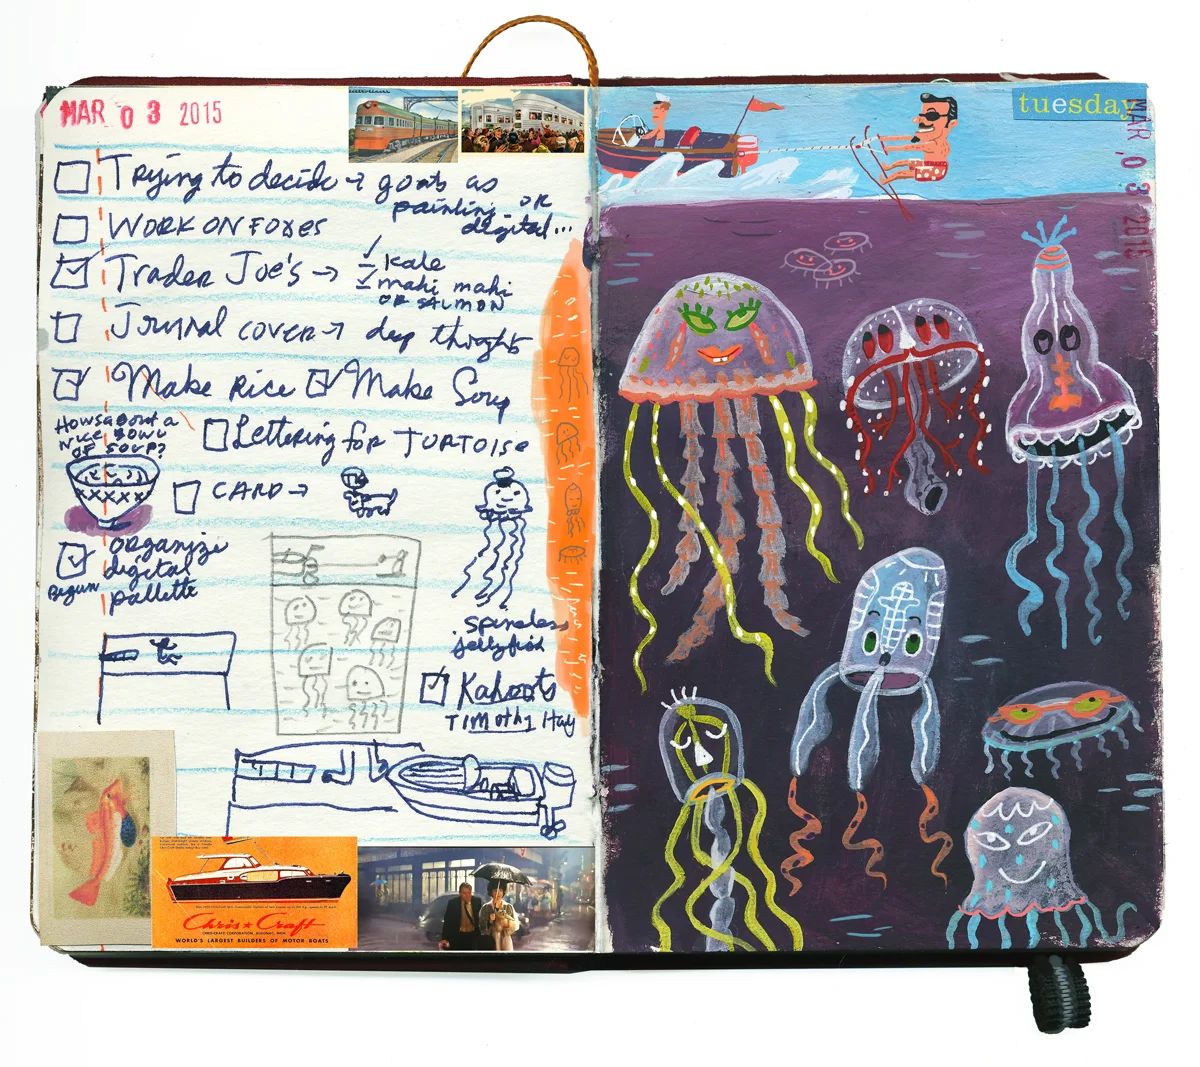 MAR 03 2015
Trying to decide → goats as
painting OR
digital...
WORK ON FOXES
Trader Joe's → kale
mahi mahi
OR SALMON
Journal cover → deep thoughts
Make Rice Make Soup
Hows about a
NICE BOWL
OF SOUP?
Lettering for TORTOISE
CARD →
organize
digital
pallette
Begun
spineless
jellyfish
Kahoots
TIMOTHY Hay
Chris★Craft
CHRIS-CRAFT CORPORATION, ALGONAC, MICH.
WORLD'S LARGEST BUILDERS OF MOTOR BOATS
tuesday
MAR 03 2015